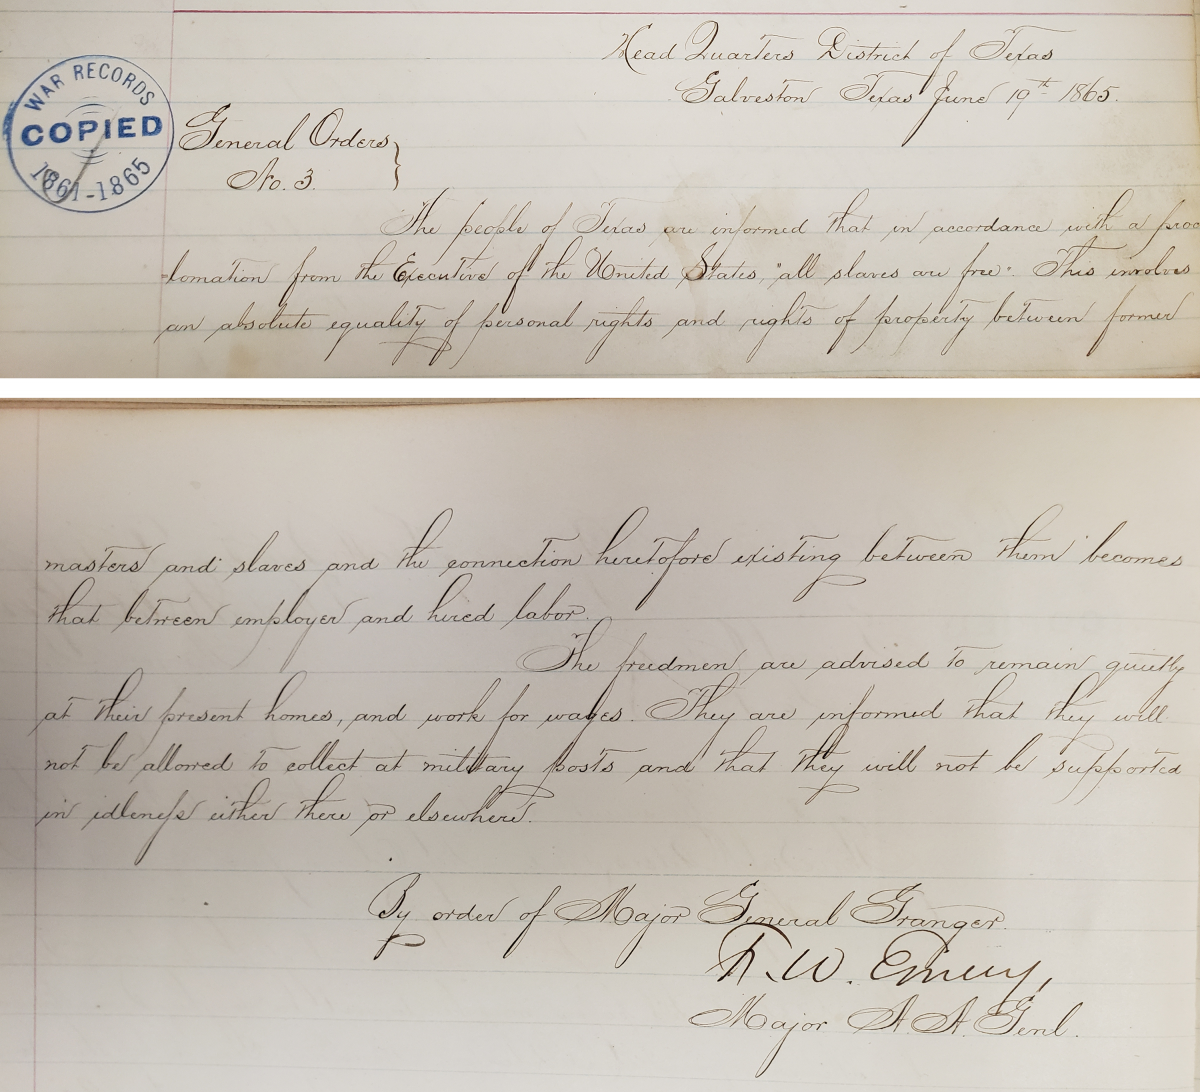 Head Quarters District of Texas
Galveston Texas June 19th 1865.
WAR RECORDS
COPIED
1861-1865
General Orders
No. 3.
The people of Texas are informed that in accordance with a proc
=lamation from the Executive of the United States, "all slaves are free". This involves
an absolute equality of personal rights and rights of property between former
masters and slaves and the connection heretofore existing between them becomes
that between employer and hired labor.
The freedmen are advised to remain quietly
at their present homes, and work for wages. They are informed that they will
not be allowed to collect at military posts and that they will not be supported
in idleness either there or elsewhere.
By order of Major General Granger.
F. W. Emery,
Major A. A. Genl.